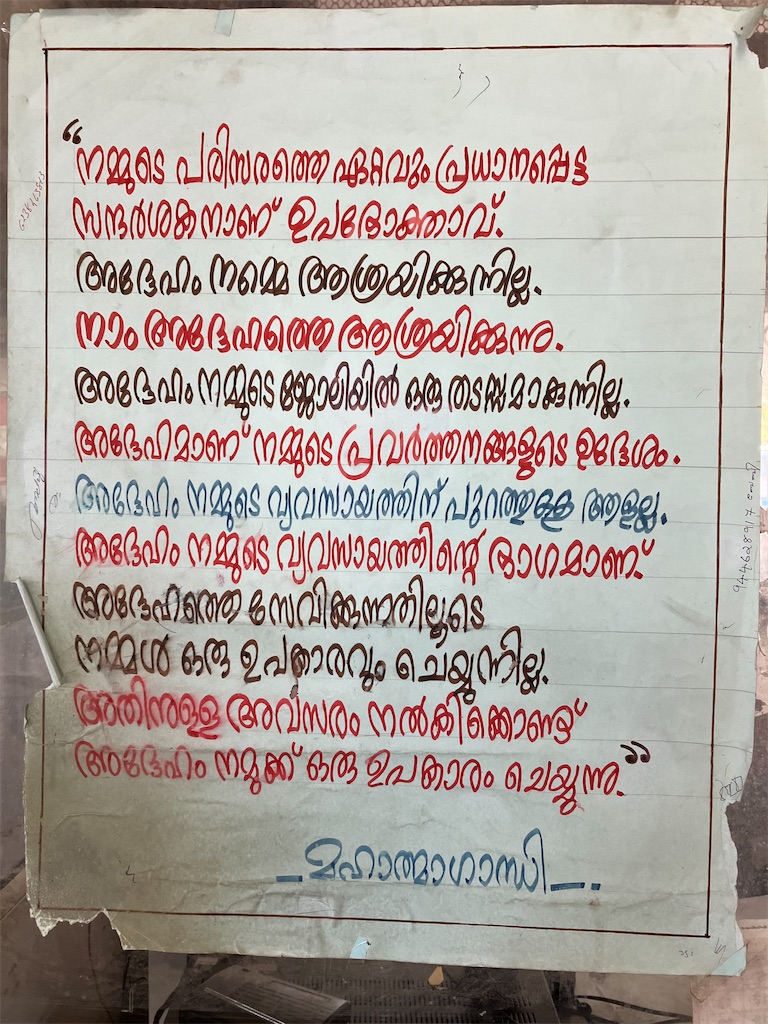 "നമ്മുടെ പരിസരത്തെ ഏറ്റവും പ്രധാനപ്പെട്ട
സന്ദർശകനാണ് ഉപഭോക്താവ്.
അദ്ദേഹം നമ്മെ ആശ്രയിക്കുന്നില്ല.
നാം അദ്ദേഹത്തെ ആശ്രയിക്കുന്നു.
അദ്ദേഹം നമ്മുടെ ജോലിയിൽ ഒരു തടസ്സമാകുന്നില്ല.
അദ്ദേഹമാണ് നമ്മുടെ പ്രവർത്തനങ്ങളുടെ ഉദ്ദേശം.
അദ്ദേഹം നമ്മുടെ വ്യവസായത്തിന് പുറത്തുള്ള ആളല്ല.
അദ്ദേഹം നമ്മുടെ വ്യവസായത്തിന്റെ ഭാഗമാണ്.
അദ്ദേഹത്തെ സേവിക്കുന്നതിലൂടെ
നമ്മൾ ഒരു ഉപകാരവും ചെയ്യുന്നില്ല.
അതിനുള്ള അവസരം നൽകിക്കൊണ്ട്
അദ്ദേഹം നമുക്ക് ഒരു ഉപകാരം ചെയ്യുന്നു."
- മഹാത്മാഗാന്ധി -..
9446628917